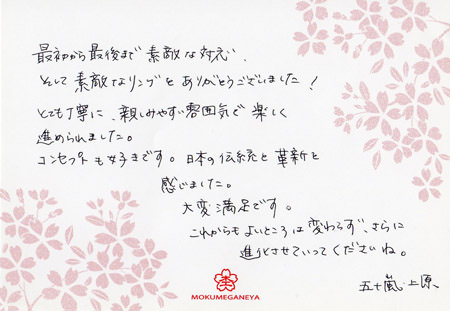 最初から最後まで素敵な対応、
そして素敵なリングをありがとうございました！
とても丁寧に、親しみやすい雰囲気で楽しく
進められました。
コンセプトも好きです。日本の伝統と革新を
感じました。
大変満足です。
これからもよいところは変わらず、さらに
進化させていってくださいね。
五十嵐・上原
MOKUMEGANEYA